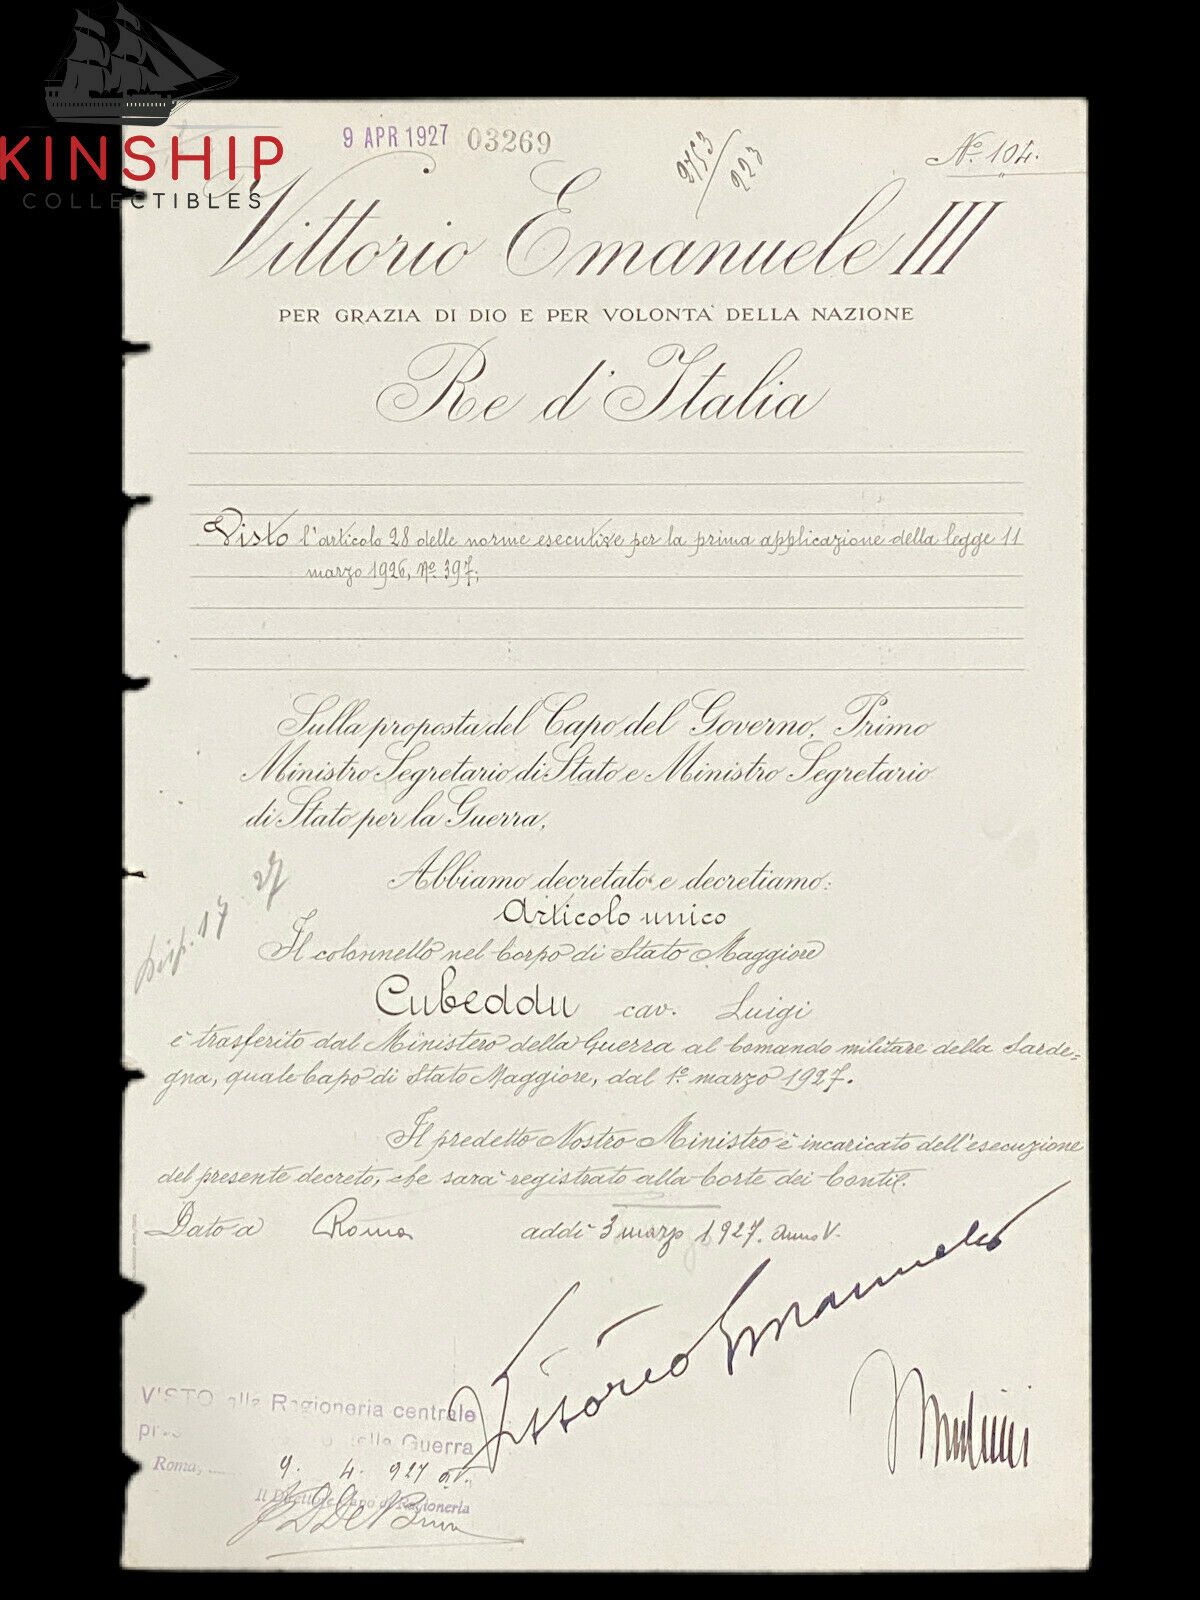 KINSHIP
COLLECTIBLES
9 APR 1927 03269
2753/223
N.º 104.
Vittorio Emanuele III
PER GRAZIA DI DIO E PER VOLONTA' DELLA NAZIONE
Re d'Italia
Visto l'articolo 28 delle norme esecutive per la prima applicazione della legge 11
marzo 1926, Nº 397;
Sulla proposta del Capo del Governo, Primo
Ministro Segretario di Stato e Ministro Segretario
di Stato per la Guerra,
Abbiamo decretato e decretiamo:
Articolo unico
Il colonnello nel Corpo di Stato Maggiore
Cubeddu cav. Luigi
è trasferito dal Ministero della Guerra al Comando militare della Sarde=
gna, quale Capo di Stato Maggiore, dal 1º marzo 1927.
Il predetto Nostro Ministro è incaricato dell'esecuzione
del presente decreto, che sarà registrato alla Corte dei Conti.
Dato a Roma addì 3 marzo 1927. Anno V.
Vittorio Emanuele
Mussolini
VISTO alla Ragioneria centrale
della Guerra
Roma, 9. 4. 927
Il Direttore Capo di Ragioneria